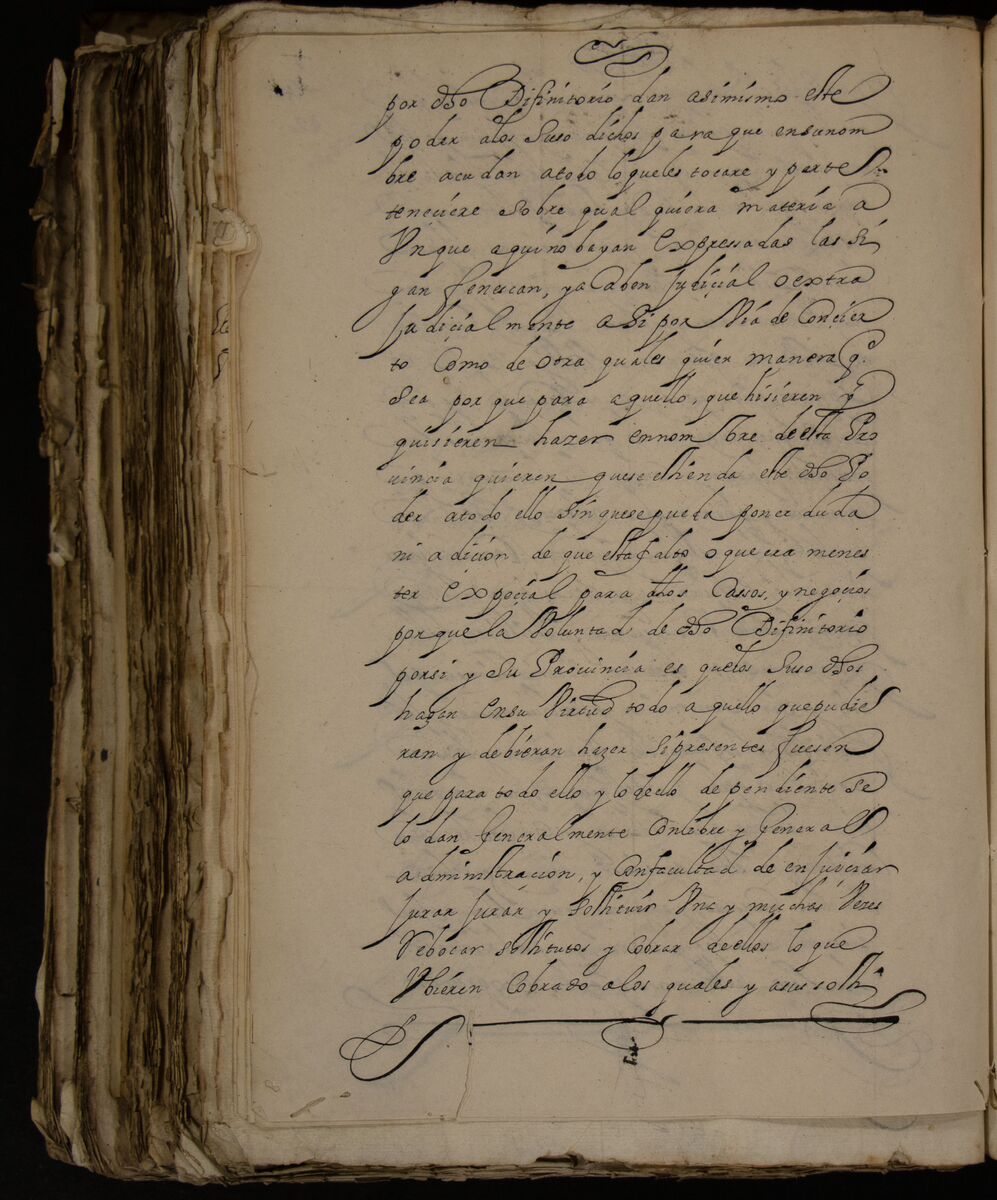 por dho Difinitorio dan asimismo este
poder alos suso dichos para que ensunom
bre acudan atodo loqueles tocare y perte
teneciere sobre qual quiera materia a
Vnque aquino bayan Expressadas las si
gan fenescan, yacaben Judicial o extra
Judicialmente asi por Via de Concier
to Como de otra quales quier manera q.
sea por que para aquello, que hisieren y
quisieren hazer ennombre de esta Pro
vincia quieren quese estienda este dho Po
der atodo ello sin quese pueda poner duda
ni adicion de que esta falto o que era menes
ter Expecial para dhos Cassos, y negocios
porque la Voluntad de dho Difinitorio
porsi y su Provincia es quelos suso dhos
hagan ensu Virtud todo aquello quepudie
ran y debieran hazer sipresentes fuesen
que para todo ello y lo dello dependiente se
lo dan Generalmente Conlibre y General
administracion, y Confacultad de enJuiciar
Jurar Jurar y sostituir Vna y muchas Vezes
Rebocar sostitutos y Cobrar dellos lo que
Vbieren Cobrado alos quales y asus sosti